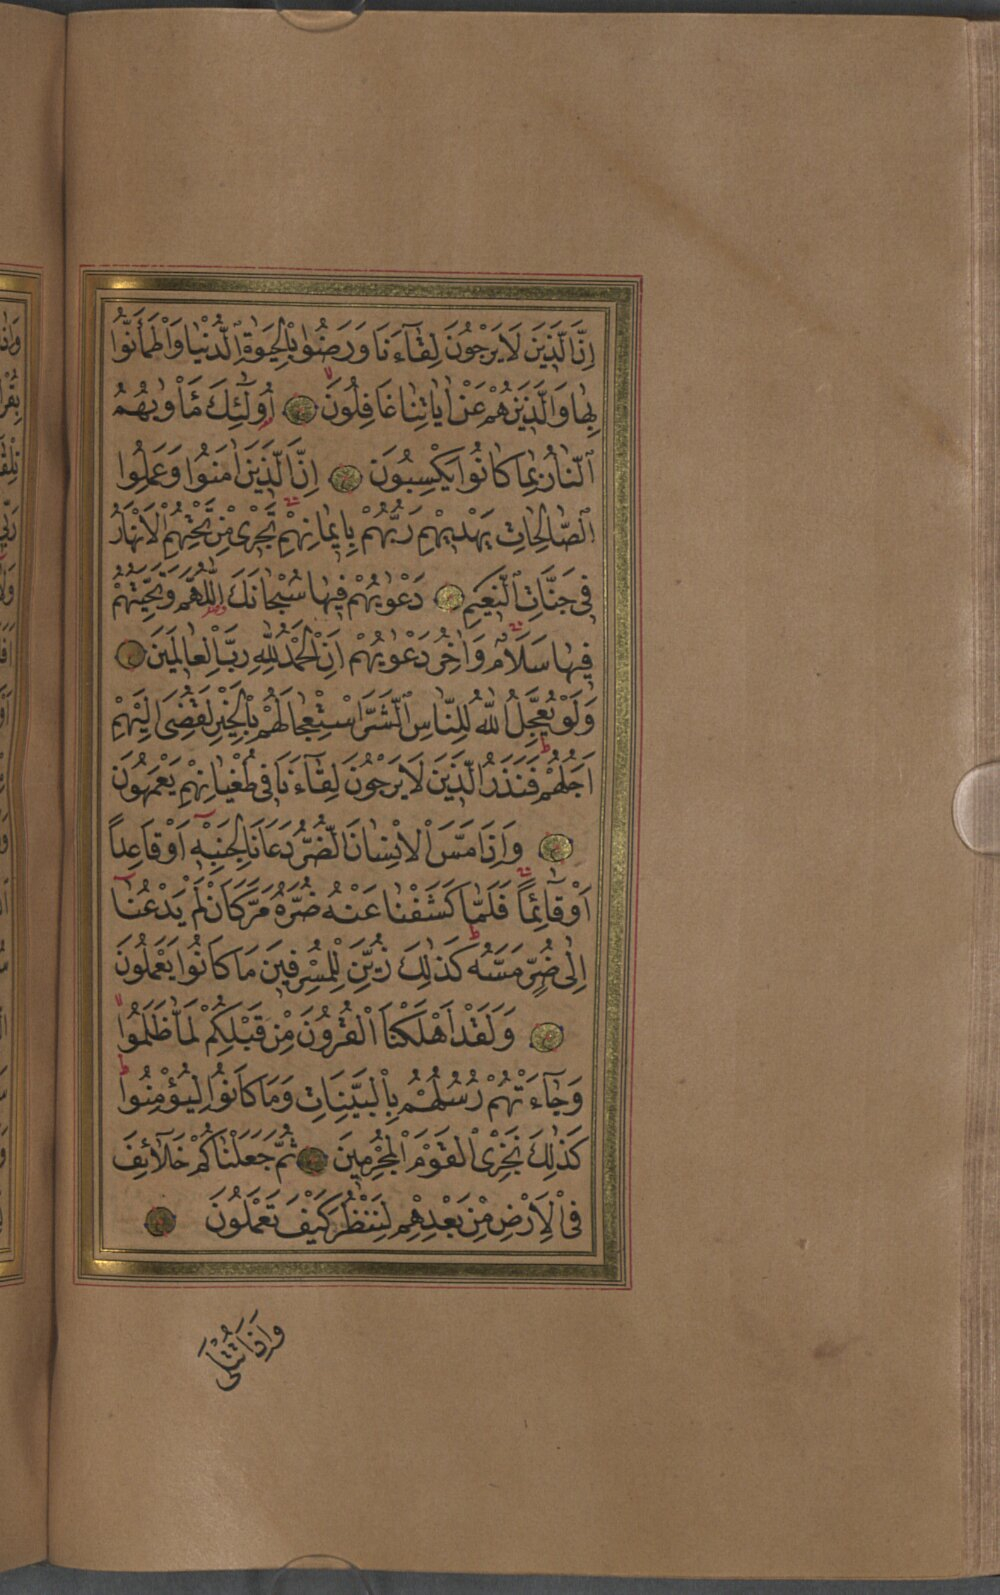 اِنَّ الَّذِينَ لَا يَرْجُونَ لِقَٓاءَنَا وَرَضُوا بِالْحَيٰوةِ الدُّنْيَا وَاطْمَاَنُّوا
بِهَا وَالَّذِينَ هُمْ عَنْ اٰيَاتِنَا غَافِلُونَ اُولٰٓئِكَ مَاْوٰيهُمُ
النَّارُ بِمَا كَانُوا يَكْسِبُونَ اِنَّ الَّذِينَ اٰمَنُوا وَعَمِلُوا
الصَّالِحَاتِ يَهْدِيهِمْ رَبُّهُمْ بِاِيمَانِهِمْ تَجْرِى مِنْ تَحْتِهِمُ الْاَنْهَارُ
فِى جَنَّاتِ النَّعِيمِ دَعْوٰيهُمْ فِيهَا سُبْحَانَكَ اللّٰهُمَّ وَتَحِيَّتُهُمْ
فِيهَا سَلَامٌ وَاٰخِرُ دَعْوٰيهُمْ اَنِ الْحَمْدُ لِلّٰهِ رَبِّ الْعَالَمِينَ
وَلَوْ يُعَجِّلُ اللّٰهُ لِلنَّاسِ الشَّرَّ اسْتِعْجَالَهُمْ بِالْخَيْرِ لَقُضِىَ اِلَيْهِمْ
اَجَلُهُمْ فَنَذَرُ الَّذِينَ لَا يَرْجُونَ لِقَٓاءَنَا فِى طُغْيَانِهِمْ يَعْمَهُونَ
وَاِذَا مَسَّ الْاِنْسَانَ الضُّرُّ دَعَانَا لِجَنْبِهٖ اَوْ قَاعِدًا
اَوْ قَٓائِمًا فَلَمَّا كَشَفْنَا عَنْهُ ضُرَّهُ مَرَّ كَاَنْ لَمْ يَدْعُنَٓا
اِلٰى ضُرٍّ مَسَّهُ كَذٰلِكَ زُيِّنَ لِلْمُسْرِفِينَ مَا كَانُوا يَعْمَلُونَ
وَلَقَدْ اَهْلَكْنَا الْقُرُونَ مِنْ قَبْلِكُمْ لَمَّا ظَلَمُوا
وَجَٓاءَتْهُمْ رُسُلُهُمْ بِالْبَيِّنَاتِ وَمَا كَانُوا لِيُؤْمِنُوا
كَذٰلِكَ نَجْزِى الْقَوْمَ الْمُجْرِمِينَ ثُمَّ جَعَلْنَاكُمْ خَلَٓائِفَ
فِى الْاَرْضِ مِنْ بَعْدِهِمْ لِنَنْظُرَ كَيْفَ تَعْمَلُونَ
وَاِذَا تُتْلٰى